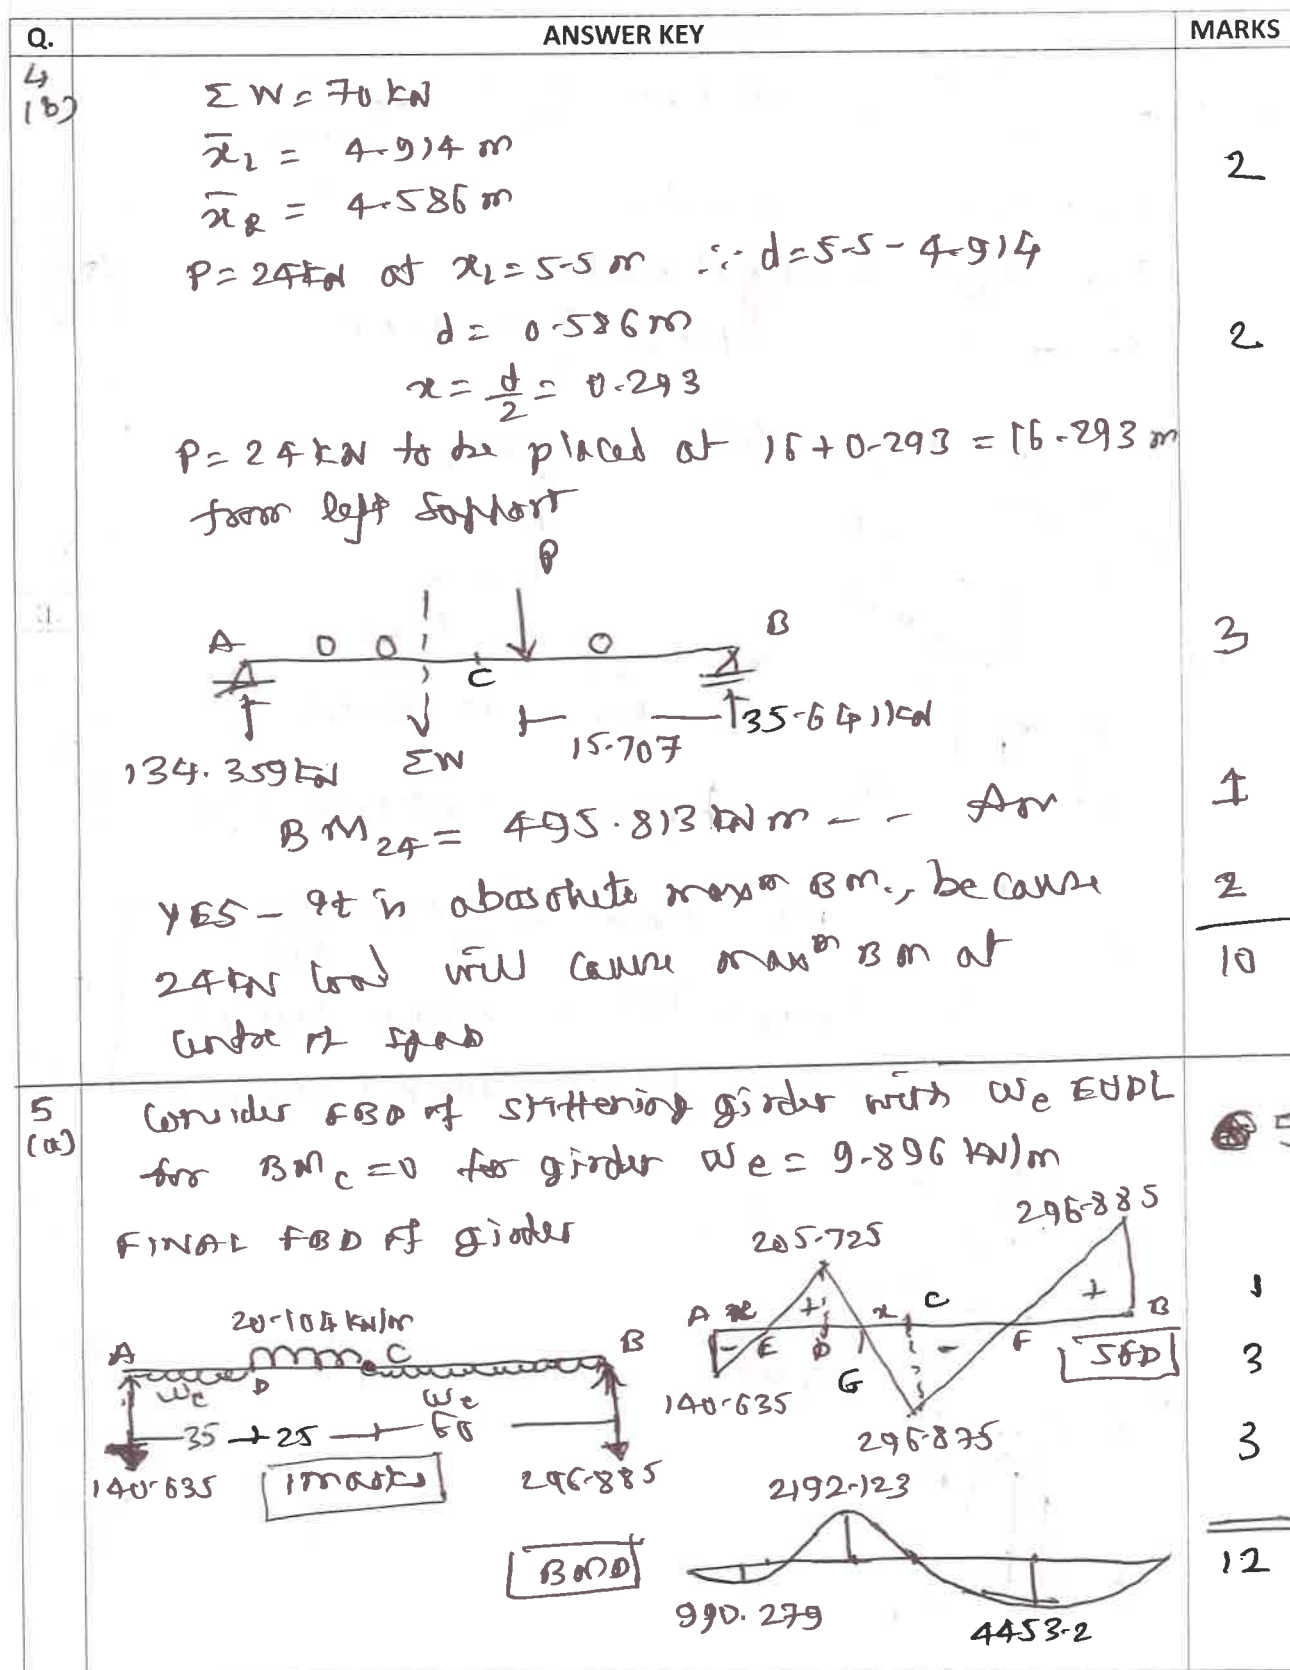 Q. ANSWER KEY MARKS
4
(b)
Σ W = 70 kN
x̄L = 4.914 m
2
x̄R = 4.586 m
P = 24 kN at xL = 5.5 m ∴ d = 5.5 - 4.914
d = 0.586 m
2
x = d/2 = 0.293
P = 24 kN to be placed at 16 + 0.293 = 16.293 m
from left support
P
A B
C
3
134.359 kN ΣW 15.707 35.641 kN
BM24 = 495.813 kN m -- Ans
1
YES - It is abosolute maxm BM., because
2
24 kN load will cause maxm BM at
10
centre of span
5
(a)
Consider FBD of stiffening girder with We EUDL
5
for BMC = 0 for girder We = 9.896 kN/m
FINAL FBD of girder
205.725 296.885
1
20.104 kN/m
A C B
We D We
35 25 60
140.635 296.885
1 marks
A x E + D x C - F + B
G
SFD
3
140.635
296.875
3
2192.123
BMD
12
990.279
4453.2